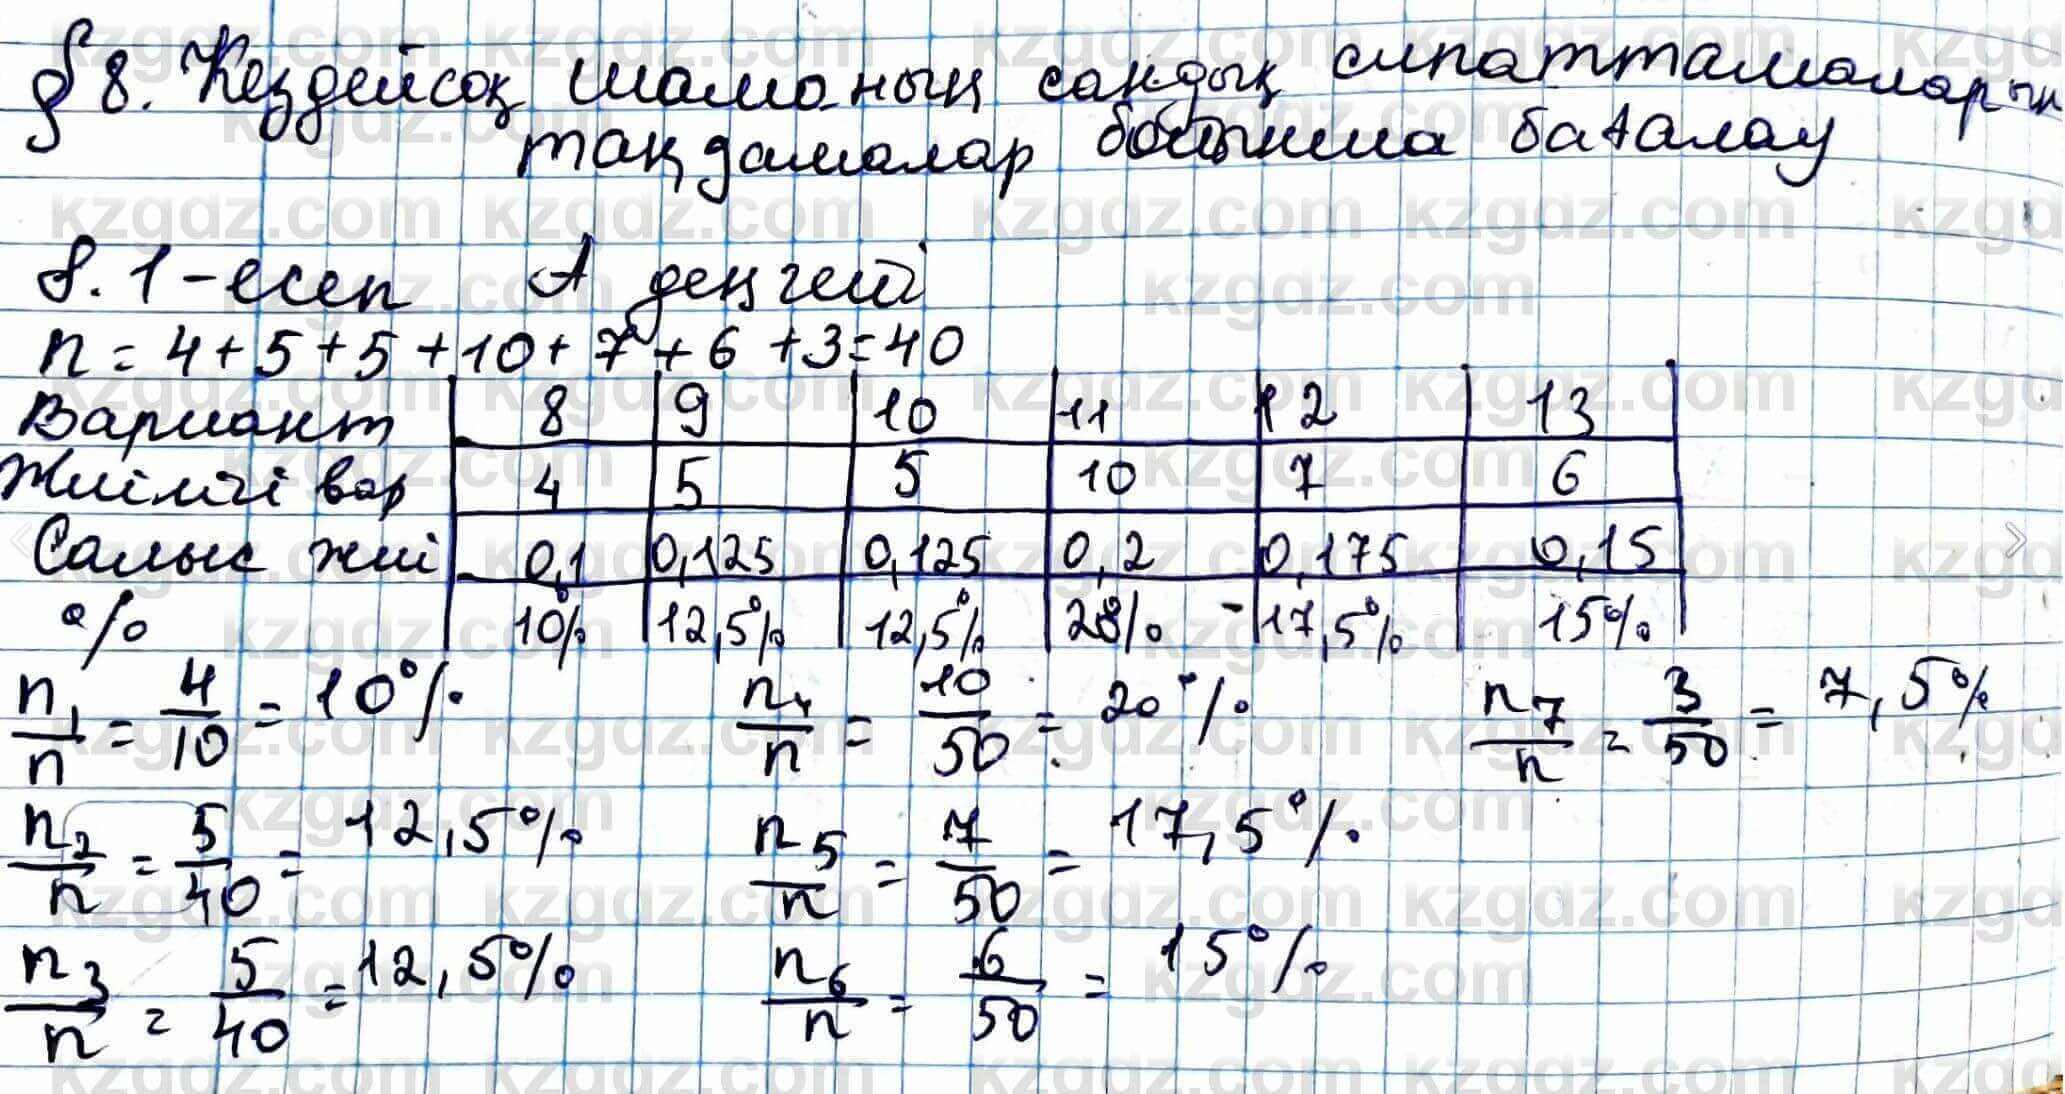 § 8. Кездейсоқ шаманың сандық сипатттамаларын
таңдамалар бойынша бағалау
8.1-есеп А деңгейі
n = 4+5+5+10+7+6+3=40
Вариант 8 9 10 11 12 13
Жиілігі вар 4 5 5 10 7 6
Салыс жиі 0,1 0,125 0,125 0,2 0,175 0,15
% 10% 12,5% 12,5% 20% 17,5% 15%
n₁/n = 4/10 = 10% n₄/n = 10/50 = 20% n₇/n = 3/50 = 7,5%
n₂/n = 5/40 = 12,5% n₅/n = 7/50 = 17,5%
n₃/n = 5/40 = 12,5% n₆/n = 6/50 = 15%